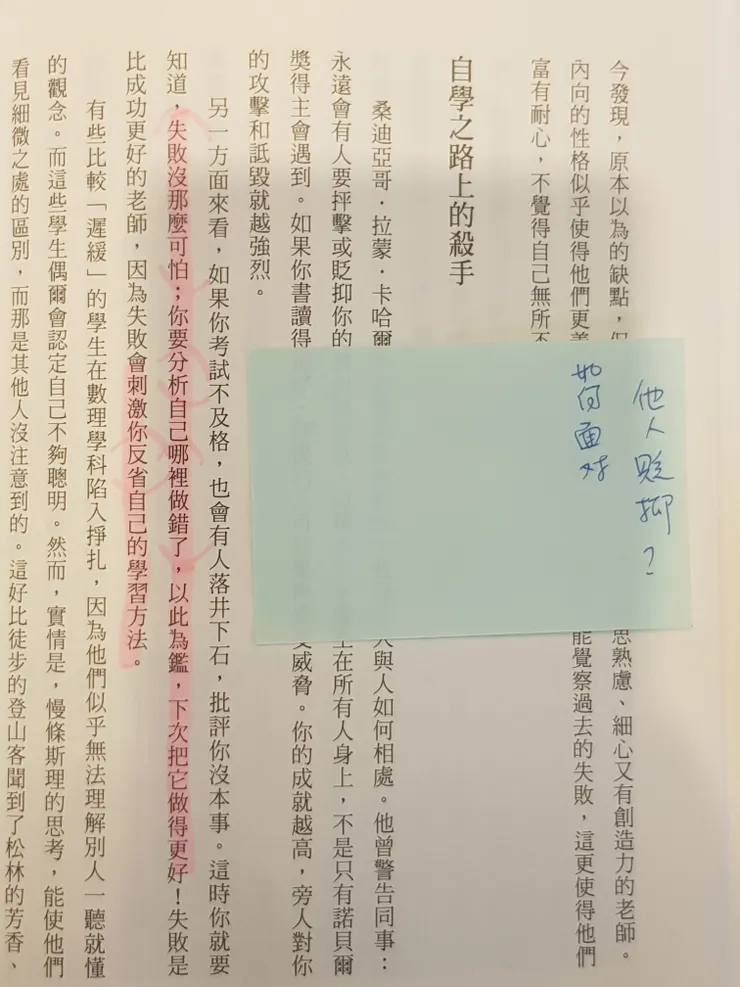 今發現，原本以為的缺點，思熟慮、細心又有創造力的老師。
內向的性格似乎使得他們更能覺察過去的失敗，這更使得他們
富有耐心，不覺得自己無所不
自學之路上的殺手
桑迪亞哥．拉蒙．卡哈爾與人如何相處。他曾警告同事：
永遠會有人要抨擊或貶抑你的在所有人身上，不是只有諾貝爾
獎得主會遇到。如果你書讀得威脅。你的成就越高，旁人對你
的攻擊和詆毀就越強烈。
另一方面來看，如果你考試不及格，也會有人落井下石，批評你沒本事。這時你就要
知道，失敗沒那麼可怕；你要分析自己哪裡做錯了，以此為鑑，下次把它做得更好！失敗是
比成功更好的老師，因為失敗會刺激你反省自己的學習方法。
有些比較「遲緩」的學生在數理學科陷入掙扎，因為他們似乎無法理解別人一聽就懂
的觀念。而這些學生偶爾會認定自己不夠聰明。然而，實情是，慢條斯理的思考，能使他們
看見細微之處的區別，而那是其他人沒注意到的。這好比徒步的登山客聞到了松林的芳香、
他人貶抑？
如何面對